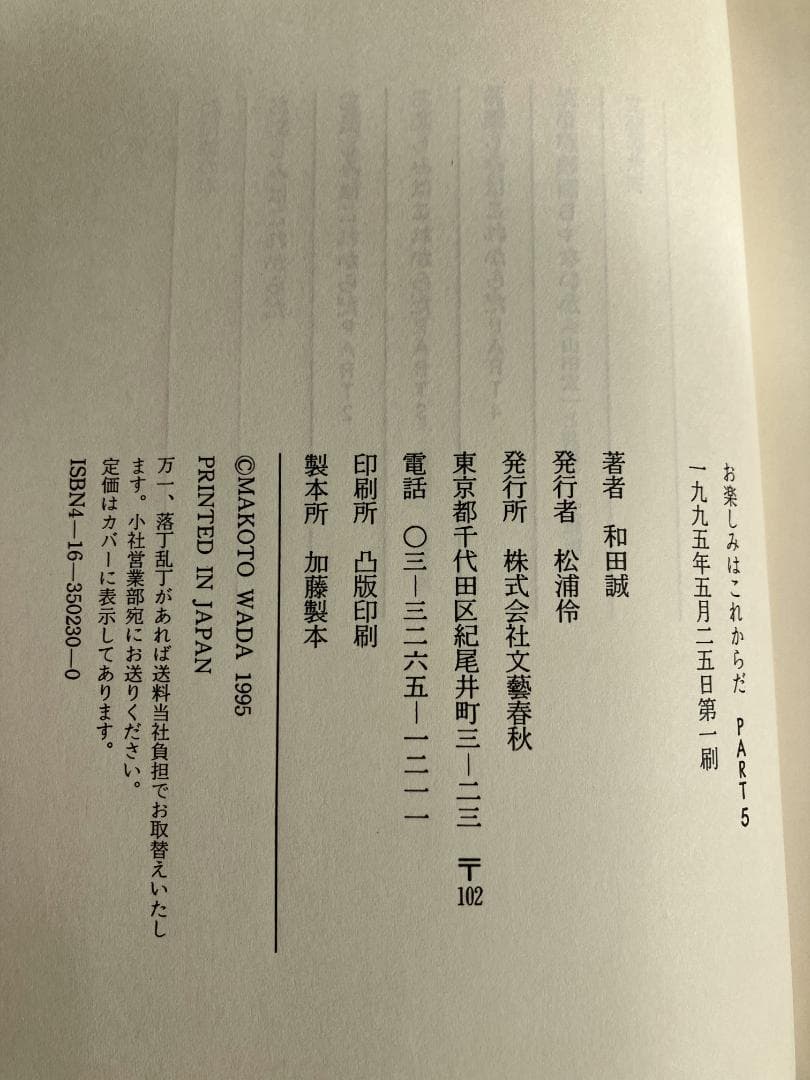 お楽しみはこれからだ PART 5
一九九五年五月二五日第一刷
著者 和田誠
発行者 松浦伶
発行所 株式会社文藝春秋
東京都千代田区紀尾井町三―二三 〒102
電話 〇三―三二六五―一二一一
印刷所 凸版印刷
製本所 加藤製本
©MAKOTO WADA 1995
PRINTED IN JAPAN
万一、落丁乱丁があれば送料当社負担でお取替えいたし
ます。小社営業部宛にお送りください。
定価はカバーに表示してあります。
ISBN4―16―350230―0